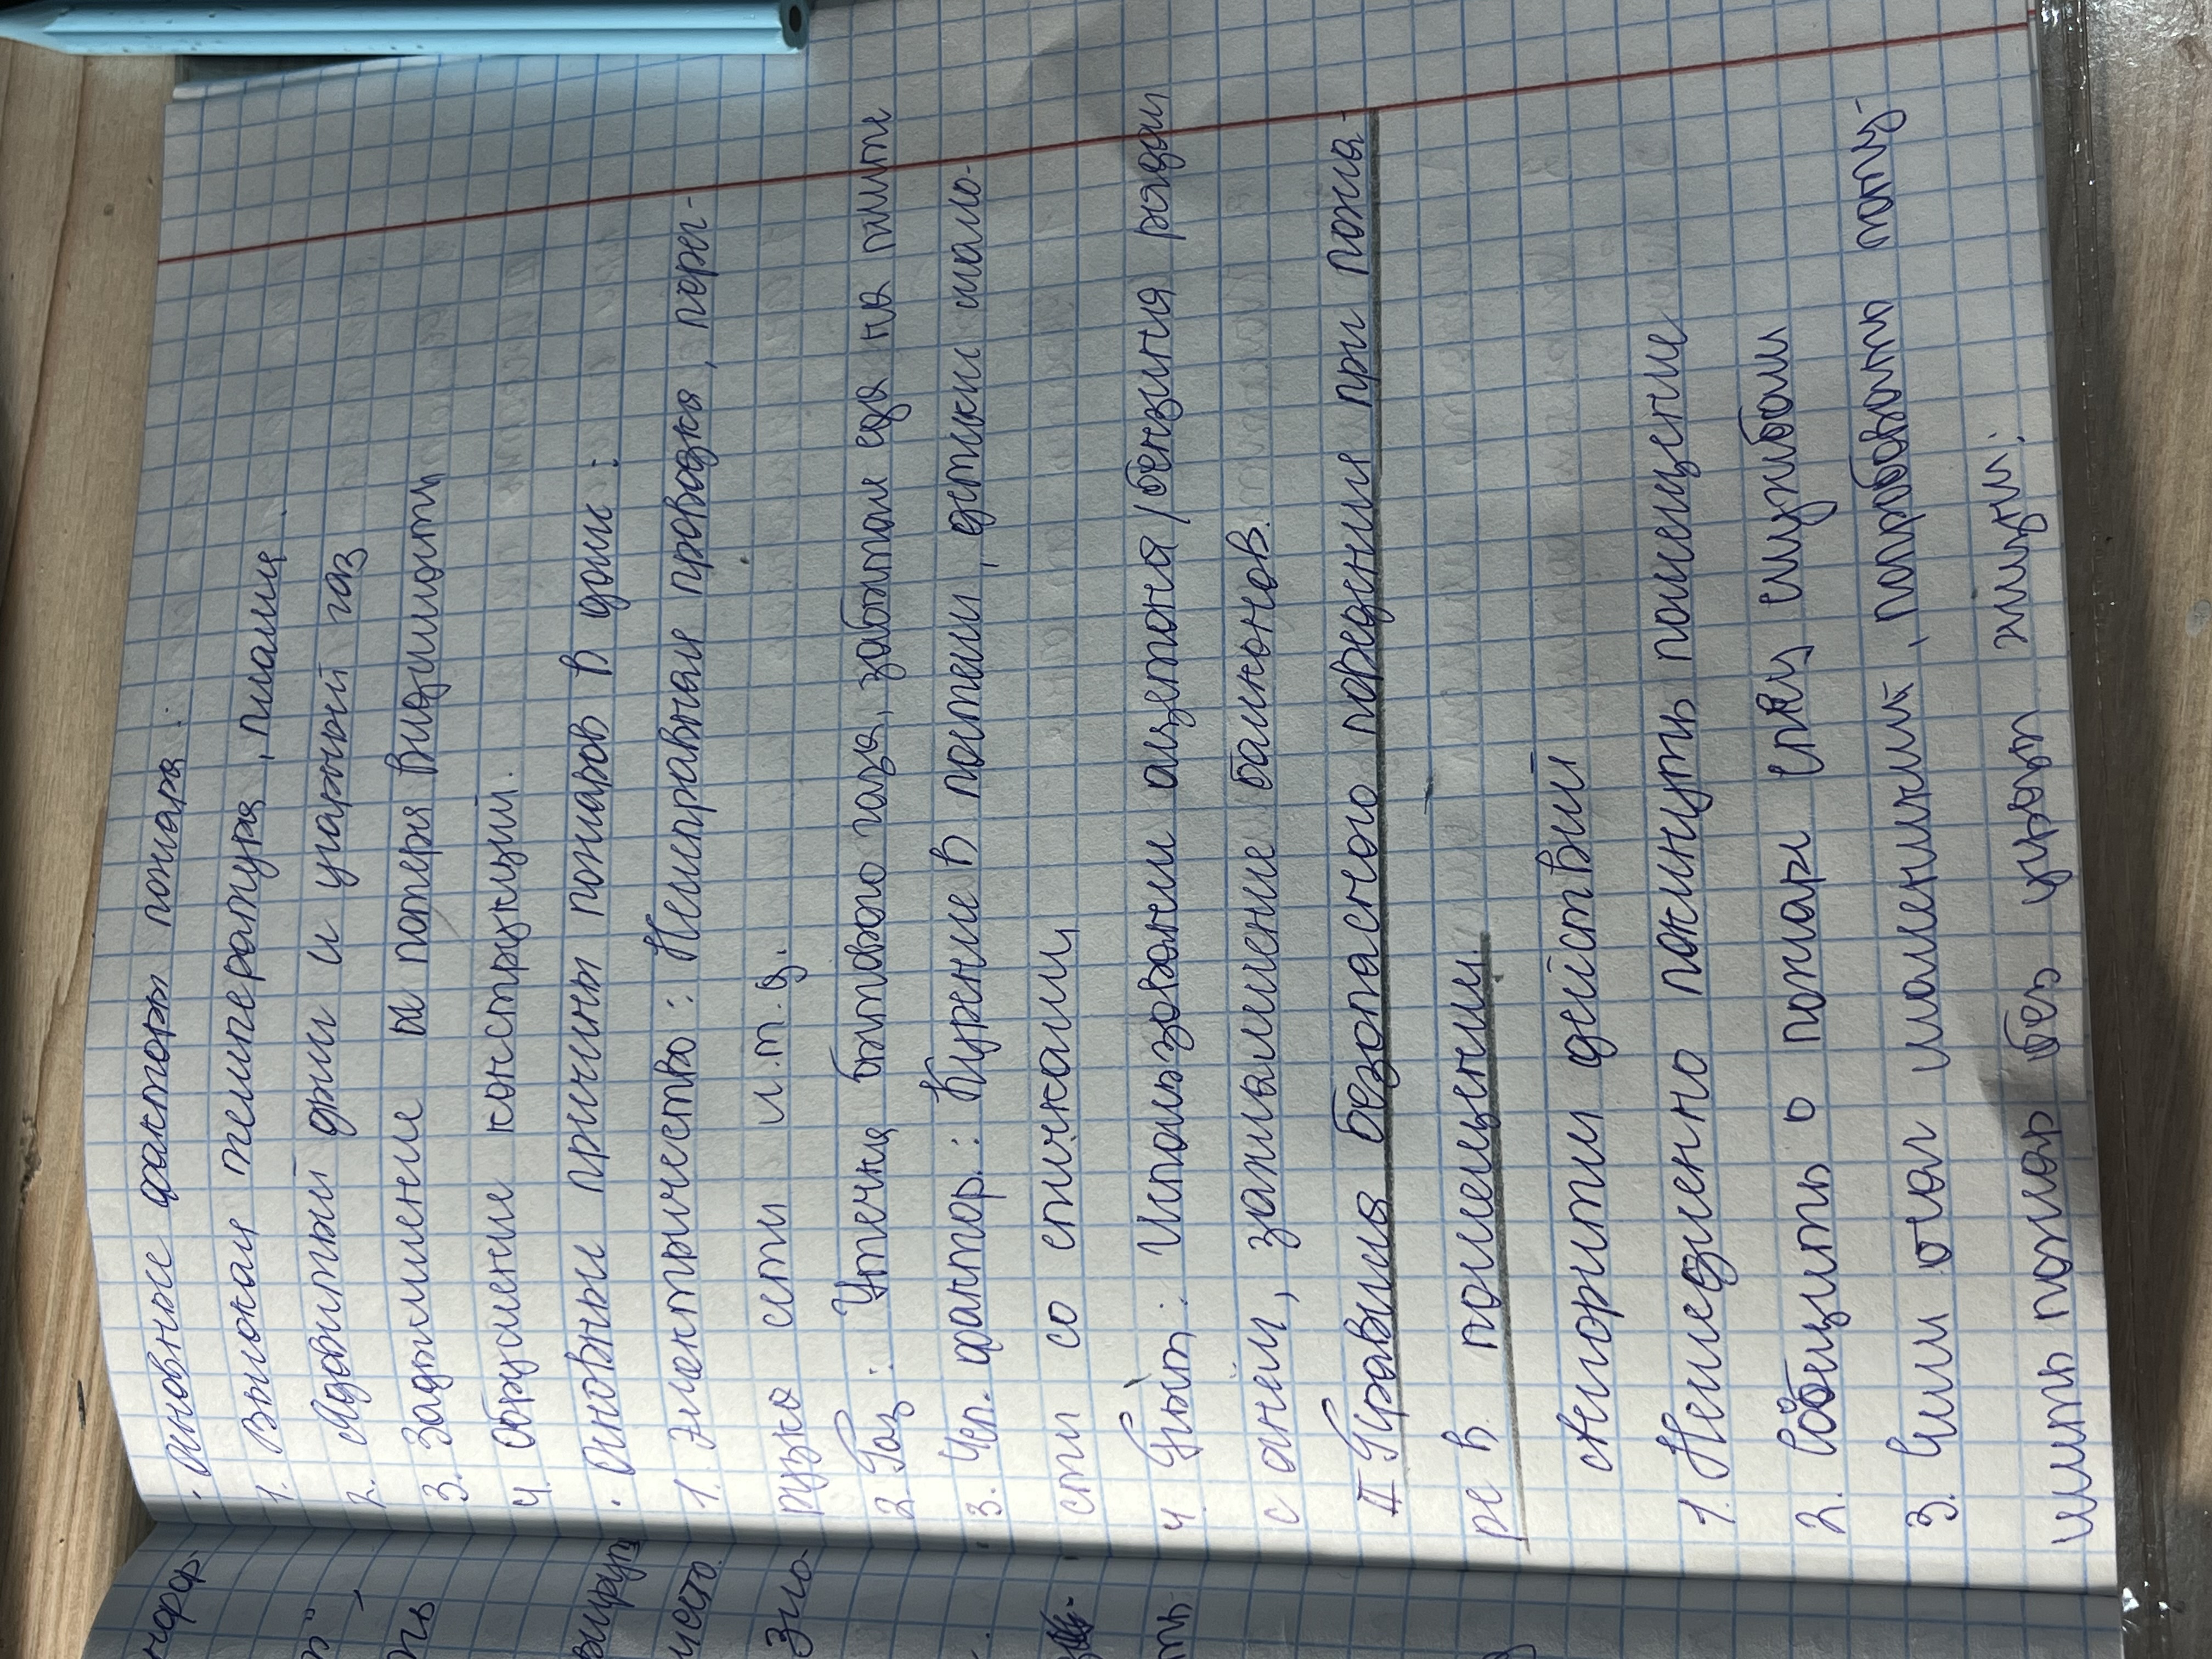 · Основные факторы пожара:
1. Высокая температура, пламя.
2. Ядовитый дым и угарный газ
3. Задымление и потеря видимости
4. Обрушение конструкций.
· Основные причины пожаров в доме:
1. Электричество: Неисправная проводка, перег-
рузка сети и.т.д.
2. Газ: Утечка бытового газа, забытая еда на плите
3. Чел. фактор.: Курение в постели, детские шало-
сти со спичками
4 Быт: Использование ацетона/бензина рядом
с огнём, захламление балконов.
II Правила безопасного поведения при пожа-
ре в помещении.
Алгоритм действий
1. Немедленно покинуть помещение
2. Сообщить о пожаре спец службам
3. Если очаг маленький, попробовать поту-
шить пожар без угрозы жизни.
нфор-
ть
вируп
место
Зло-
ть.